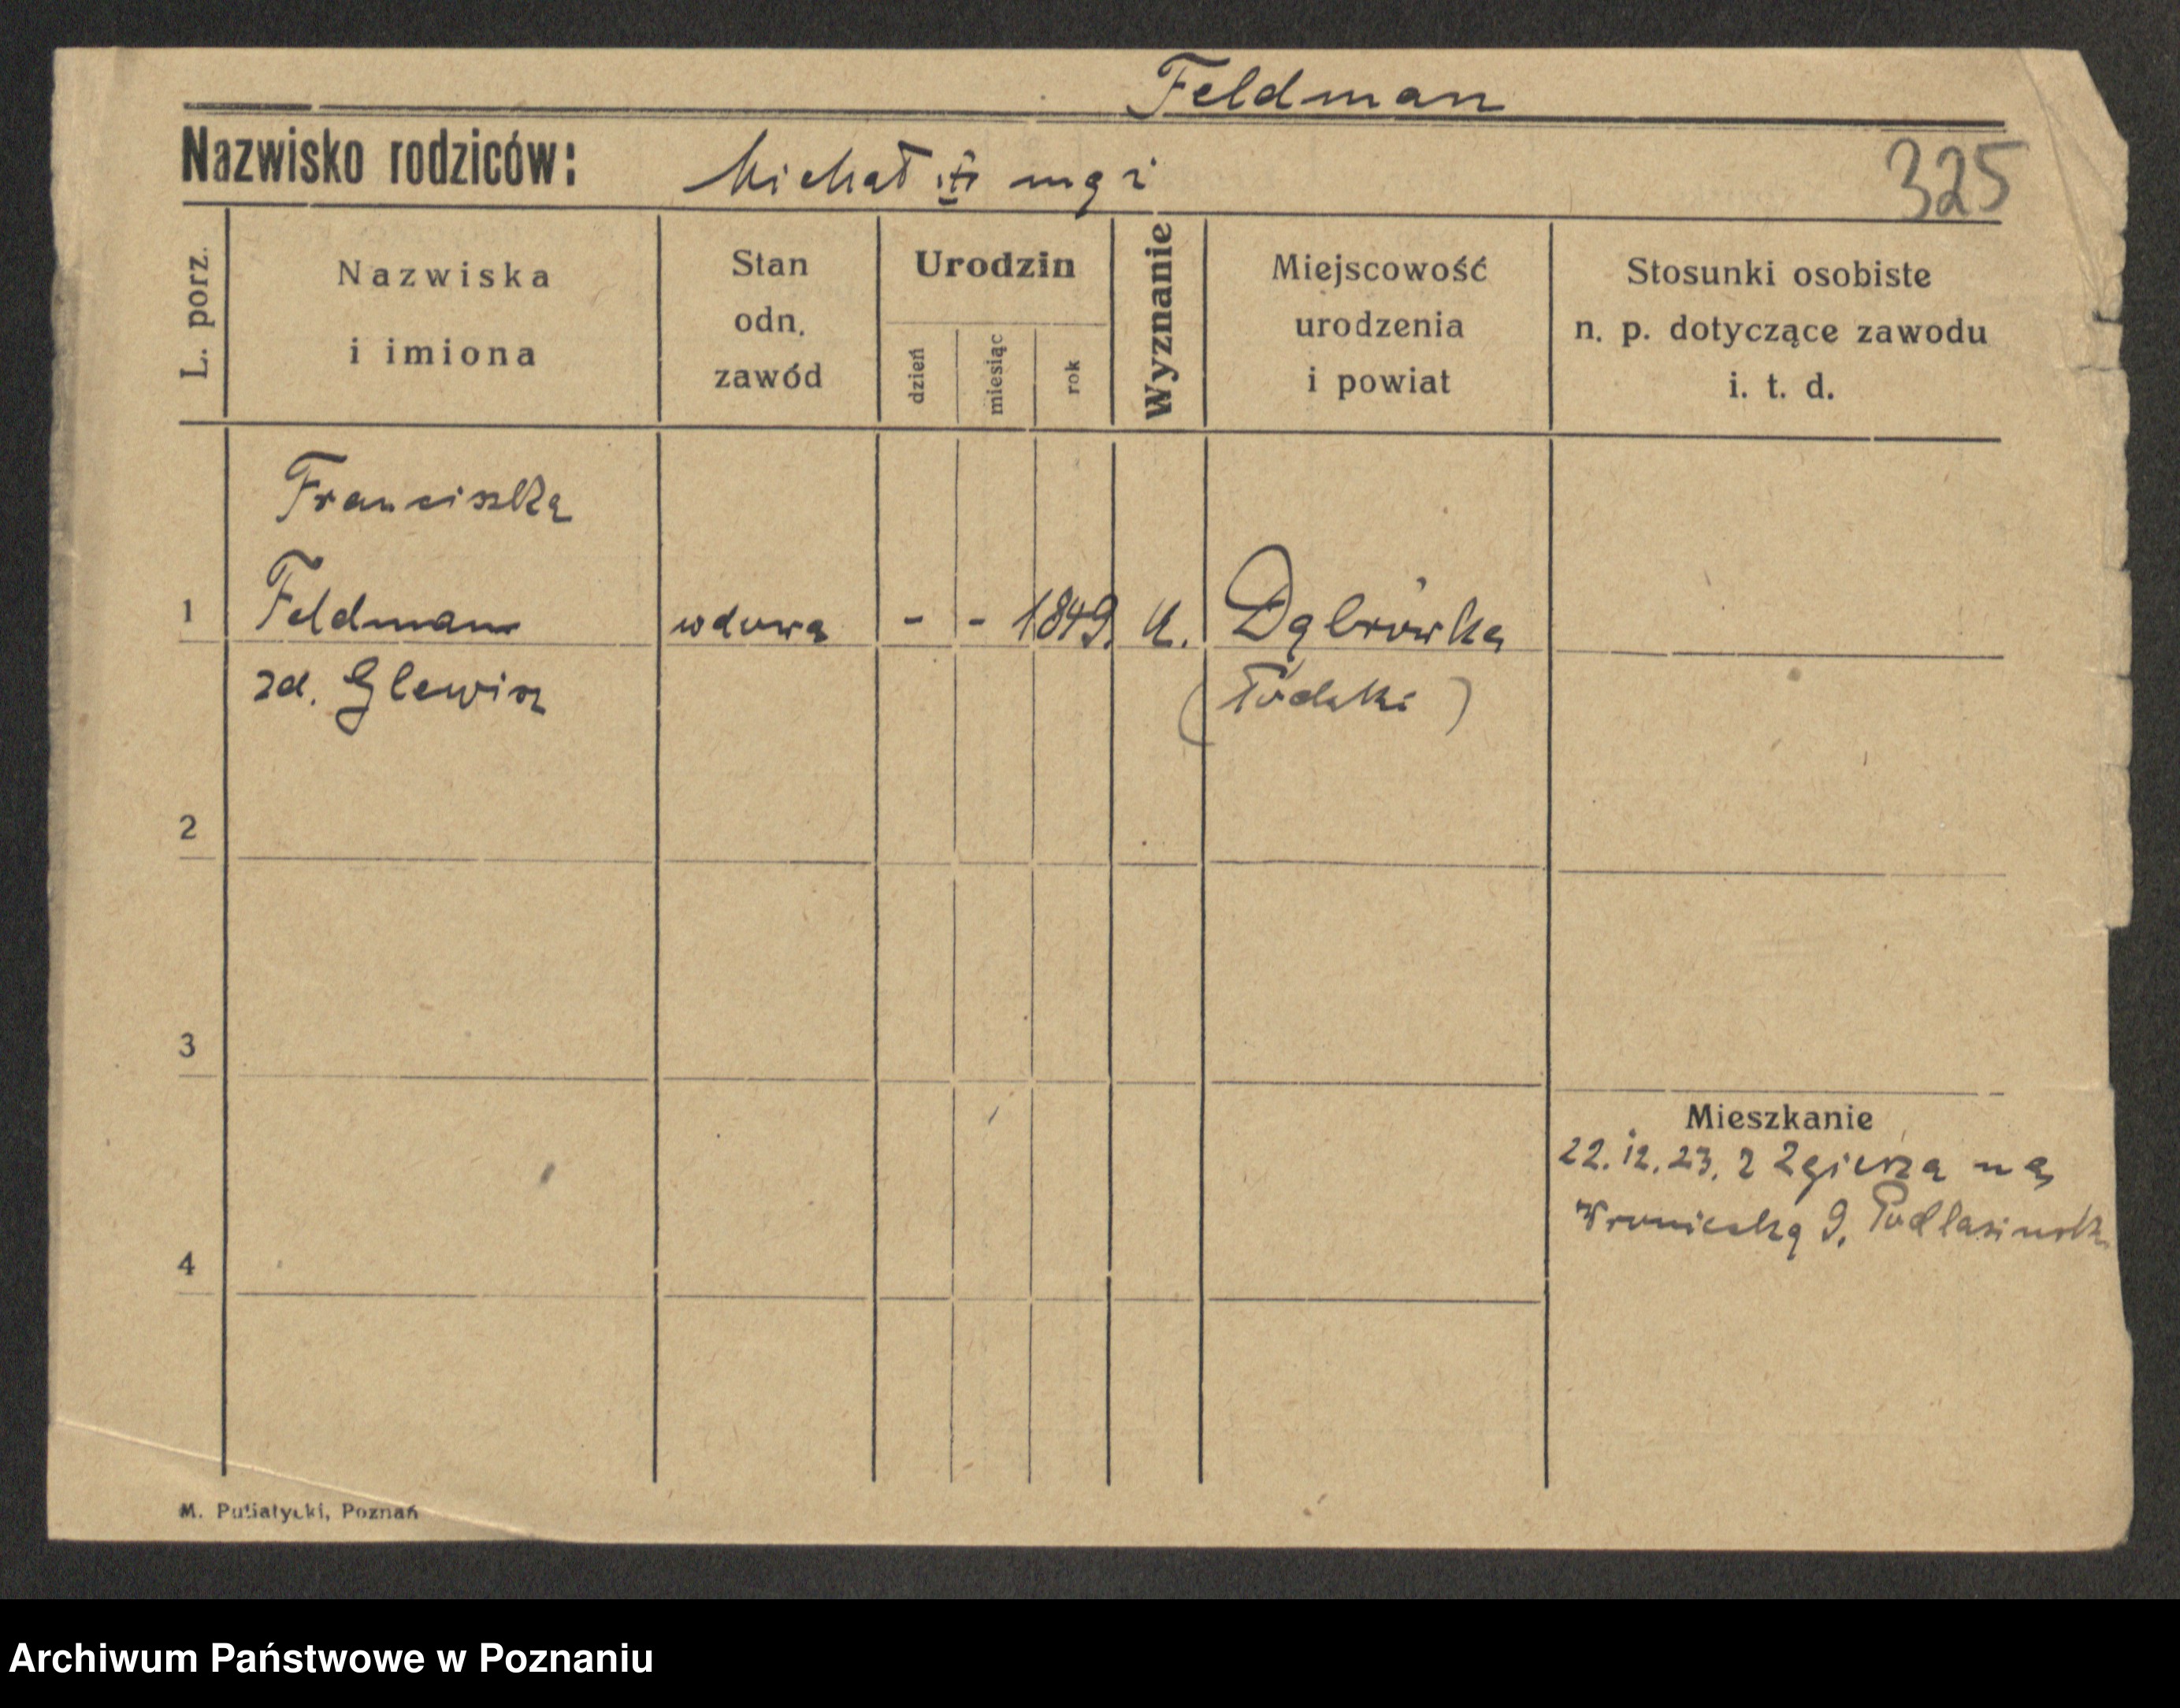 Feldman
Nazwisko rodziców: Michał mąż
325
L. porz.
Nazwiska
i imiona
Stan
odn.
zawód
Urodzin
dzień
miesiąc
rok
Wyznanie
Miejscowość
urodzenia
i powiat
Stosunki osobiste
n. p. dotyczące zawodu
i. t. d.
Franciszka
1 Feldman wdowa - - 1849. k. Dąbrówka
zd. Glewisz (Łódzki)
2
3
Mieszkanie
22.12.23. z Zgierza na
Wroniecką 9. Podlasinsk
4
M. Putiatycki, Poznań
Archiwum Państwowe w Poznaniu